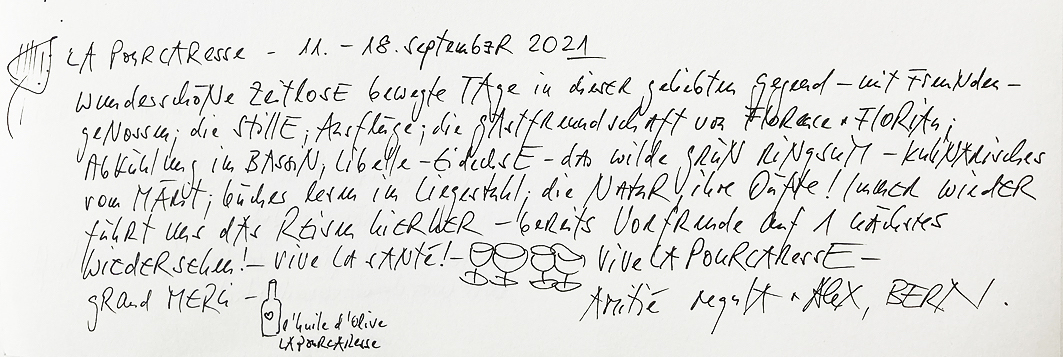 LA POURCARESSE - 11. - 18. September 2021
Wunderschöne zeitlose bewegte Tage in dieser geliebten Gegend - mit Freunden -
genossen; die Stille; Ausflüge; die Gastfreundschaft von Florence + Florian;
Abkühlung im Bassin, Libelle - Eidechse - das wilde Grün ringsum - Kulinarisches
vom Märit; Bücher lesen im Liegestuhl; die Natur, ihre Düfte! Immer wieder
führt uns das Reisen hierher - bereits Vorfreude auf 1 nächstes
Wiedersehen! - Vive la santé! - Vive LA POURCARESSE -
Grand Merci - Amitié + Alex, BERN.
l'huile d'olive
LA POURCARESSE